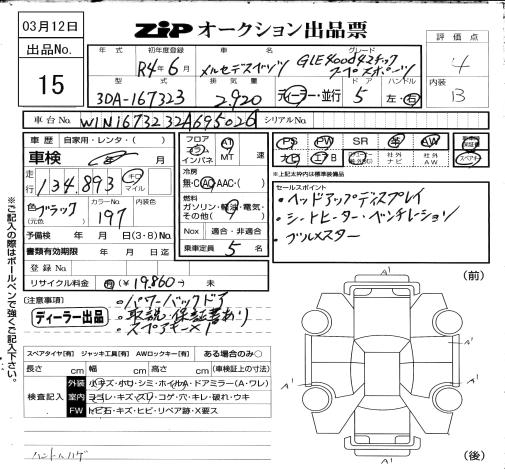 03月12日
ZIP オークション出品票
出品No.
15
評価点
4
内装
B
年式
初年度登録
車名
グレード
R4年6月
メルセデスベンツ
GLE400d4マチック
スポーツ
型式
排気量
ドア
ハンドル
3DA-167323
2,920
ディーラー・並行
5
左・右
車台No.
シリアルNo.
車歴
自家用・レンタ・( )
車検
年 月
走行
134,893
キロ
マイル
色
ブラック
(元色 )
カラーNo.
197
内装色
予備検 年 月 日(3・8)No.
書類有効期限 年 月 日
登録No.
リサイクル料金
有(¥19,860-) 未
フロア
コラム
インパネ
AT
MT
速
冷房
無・C・AC・AAC・( )
燃料
ガソリン・軽油・電気・
その他( )
Nox
適合・非適合
乗車定員
5名
PS
PW
SR
革
AW
ナビ
エアB
社外
ナビ
社外
AW
保証書
スペアキー
※上記太枠内は標準装備品
セールスポイント
・ヘッドアップディスプレイ
・シートヒーター・ベンチレーション
・ブルメスター
(注意事項)
ディーラー出品
・パワーバックドア
・取説・保証書あり
・スペアキー×1
※ご記入の際はボールペンで強くご記入下さい。
スペアタイヤ[有] ジャッキ工具[有] AWロックキー[有] ある場合のみ○
長さ cm 幅 cm 高さ cm (車検証上の寸法)
検査記入
外装
小キズ・ホロ・シミ・ホイルA・ドアミラー(A・ワレ)
室内
ヨゴレ・キズ・スレ・コゲ・穴・キレ・破れ・ウキ
FW
トビ石・キズ・ヒビ・リペア跡・X要ス
ハンドルハゲ
(前)
A'
A'
A'
A'
(後)